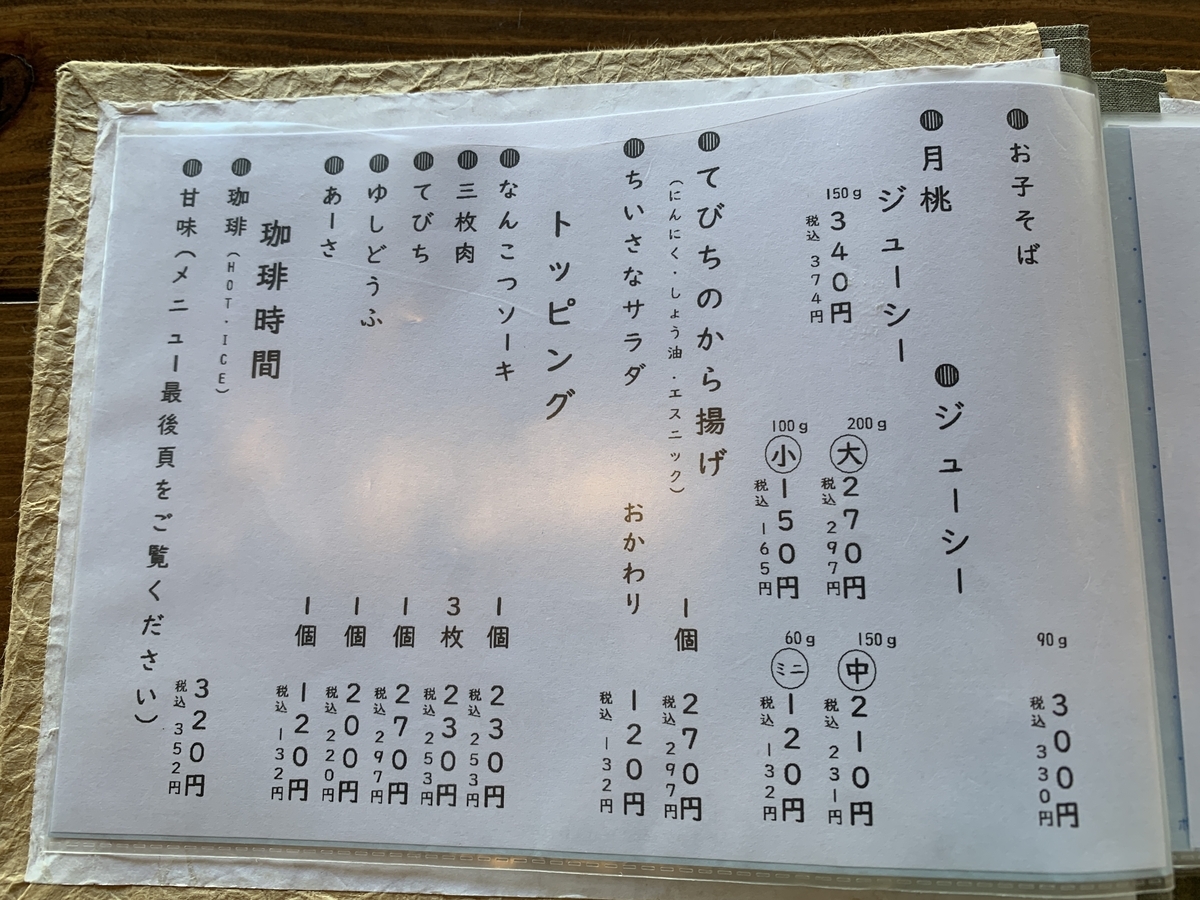 ●お子そば
90g
300円
税込 330円
●ジューシー
200g
㊅大 270円
税込 297円
150g
㊥ 210円
税込 231円
100g
小 150円
税込 165円
60g
ミニ 120円
税込 132円
●月桃
ジューシー
150g
340円
税込 374円
●てびちのから揚げ
(にんにく・しょう油・エスニック)
1個
270円
税込 297円
●ちいさなサラダ
おかわり
120円
税込 132円
トッピング
●なんこつソーキ
1個
230円
税込 253円
●三枚肉
3枚
230円
税込 253円
●てびち
1個
270円
税込 297円
●ゆしどうふ
1個
200円
税込 220円
●あーさ
1個
120円
税込 132円
珈琲時間
●珈琲(HOT・ICE)
320円
税込 352円
●甘味(メニュー最後頁をご覧ください)